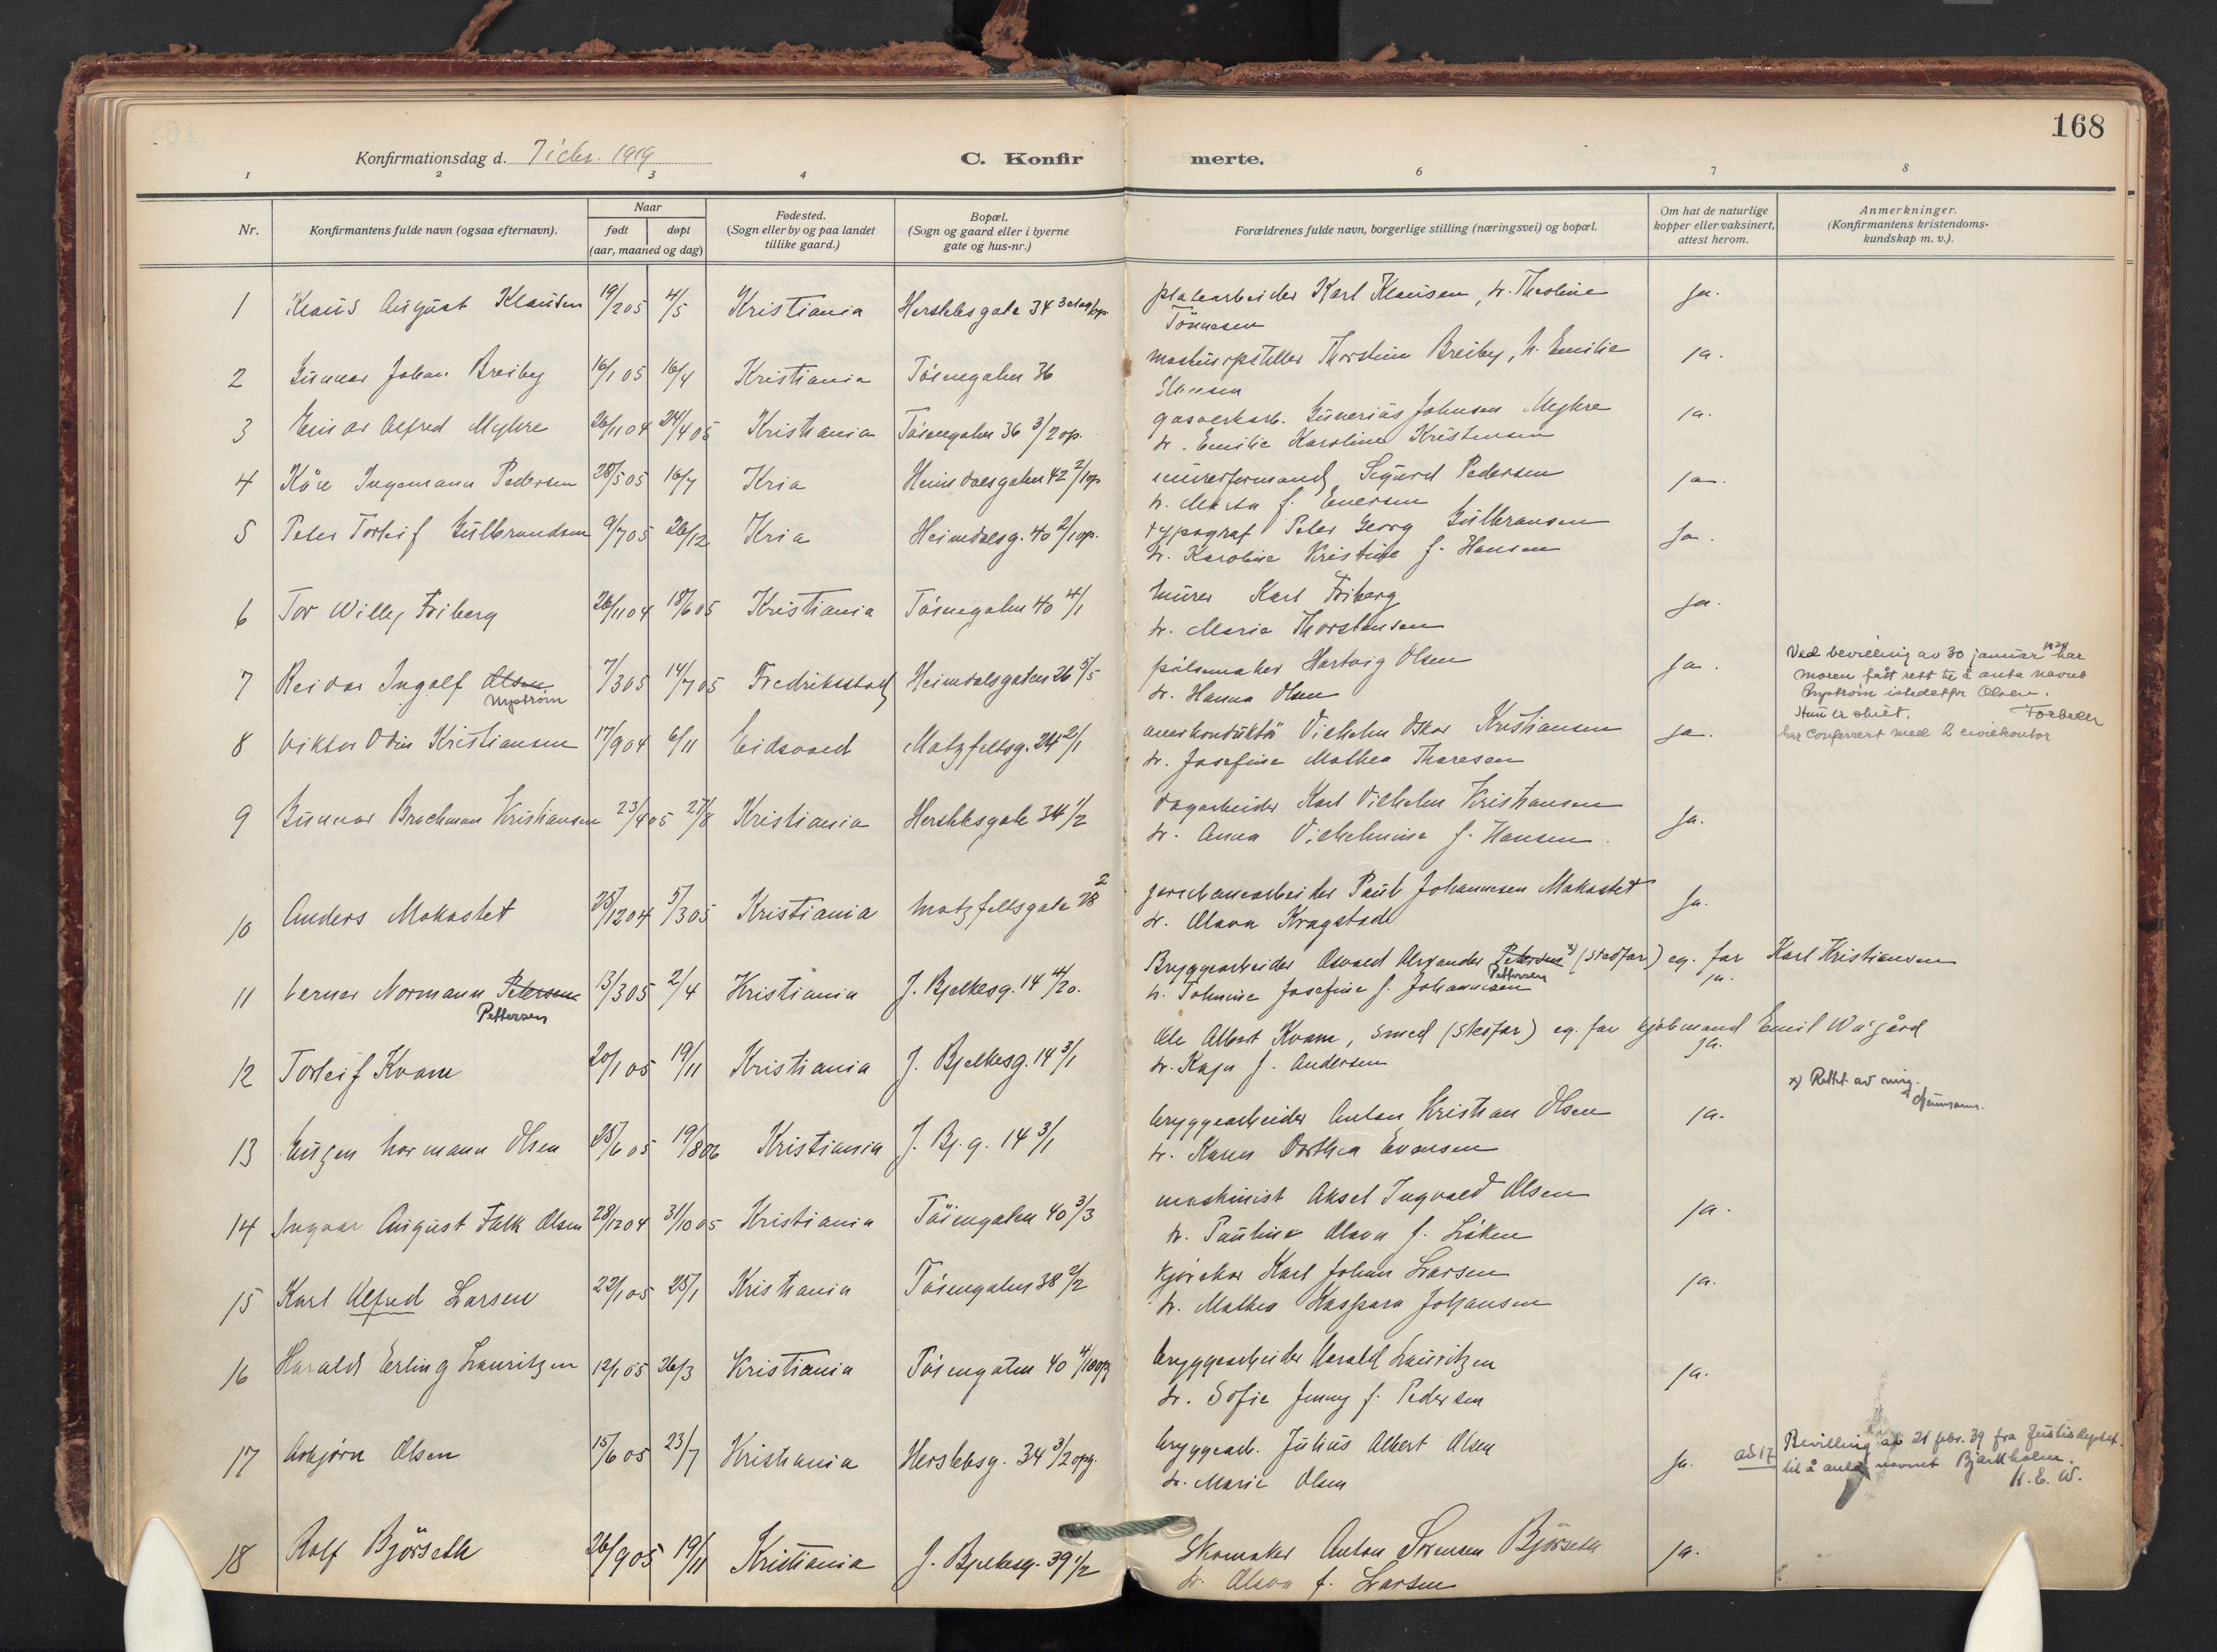 168
Konfirmationsdag d. 7 1919
C. Konfir merte.
1 2 3 4 6 7 8
Nr.
Konfirmantens fulde navn (ogsaa efternavn).
Naar
født
døpt
(aar, maaned og dag)
Fødested.
(Sogn eller by og paa landet
tillike gaard.)
Bopæl.
(Sogn og gaard eller i byerne
gate og hus-nr.)
Forældrenes fulde navn, borgerlige stilling (næringsvei) og bopæl.
Om hat de naturlige
kopper eller vaksinert,
attest herom.
Anmerkninger.
(Konfirmantens kristendoms-
kundskap m. v.).
1 Klaus August Klausen 19/2 05 4/5 Kristiania Herslebsgate 34 Platearbeider Karl Klausen, h. Theoline ja.
Tönnesen
2 Gunnar Johan Breiby 16/1 05 16/4 Kristiania Töiengaten 36 maskinopstiller Thorstein Breiby, h. Emilie ja.
3 Einar Alfred Myhre 26/11 04 24/4 05 Kristiania Töiengaten 36 3/2 op. gasverkarb. Gunerius Johnsen Myhre ja.
h. Emilie Karoline Kristensen
4 Kåre Ingemann Pedersen 28/5 05 16/7 Kria Heimdalsgaten 42 2/1 op murerformand Sigurd Pedersen ja.
h. Marta f. Enersen
5 Peter Torleif Gulbrandsen 9/7 05 26/12 Kria Heimdalsg. 40 2/1 op. typograf Peter Georg Gulbransen ja.
h. Karoline Kristine f. Hansen
6 Tor Willy Friberg 26/11 04 18/6 05 Kristiania Töiengaten 40 4/1 Murer Karl Friberg ja.
h. Marie Thorstensen
7 Reidar Ingolf Olsen 7/3 05 14/7 05 Fredriksstad Heimdalsgaten 26 5/5 pölsemaker Hartvig Olsen ja.
Nyström h. Hanna Olsen
Ved bevilling av 30 januar 1929 har
moren fått rett til å anta navnet
Nyström istedetfor Olsen.
har conferrert med 2 civilkontor
8 Viktor Odin Kristiansen 17/9 04 6/11 Eidsvold Motzfeltsg. 24 2/1 overkonduktör Vilhelm Oskar Kristiansen ja.
h. Josefine Mathea Thoresen
9 Gunnar Brachman Kristiansen 23/4 05 27/8 Kristiania Herslebsgate 34 1/2 dagarbeider Karl Vilhelm Kristiansen ja.
h. Anna Vilhelmine f. Hansen.
10 Anders Mokastet 25/12 04 5/3 05 Kristiania Motzfeltsgate 28 2 jernbanearbeider Paul Johannesen Mokastet ja.
h. Olava Kragstade
11 Verner Normann Petersen 13/3 05 2/4 Kristiania J. Bjelkesg. 14 4/20. Bryggearbeider Osvald Alexander Petersen x) (stedfar) eg. far Karl Kristiansen
Pettersen Pettersen
h. Johnine Josefine f. Johannesen ja.
12 Torleif Kvam 20/1 05 19/11 Kristiania J. Bjelkesg. 14 3/1 Ole Albert Kvam, smed (stedfar) eg. far kjöbmand Emil Wågård
h. Kaja f. Andersen ja.
x) Rettet av mig.
13 Eugen Normann Olsen 25/6 05 19/8 06 Kristiania J. Bj. g. 14 3/1 bryggearbeider Anton Kristian Olsen ja.
h. Karen Dorthea Evensen
14 Ingvar August Falk Olsen 28/12 04 31/10 05 Kristiania Töiengaten 40 3/3 maskinist Aksel Ingvald Olsen ja.
h. Pauline Olava f. Löken
15 Karl Alfred Larsen 22/1 05 25/1 Kristiania Töiengaten 38 2/2 kjörekar Karl Johan Larsen ja.
h. Mathea Kaspara Johansen
16 Harald Erling Lauritzen 12/1 05 26/3 Kristiania Töiengaten 40 4/10 opg bryggearbeider Harald Lauritzen ja.
h. Sofie Jenny f. Pedersen
17 Asbjörn Olsen 15/6 05 23/7 Kristiania Herslebsg. 34 3/2 opg. bryggearb. Julius Albert Olsen ja.
h. Marie Olsen
ad 17 Bevilling av 21 febr. 39 fra Justisdeptet.
til å anta navnet Bjarkholm.
K. E. W.
18 Rolf Björseth 26/9 05 19/11 Kristiania J. Bjelkesg. 39 1/2 Skomaker Anton Sörensen Björseth ja.
h. Olava f. Larsen